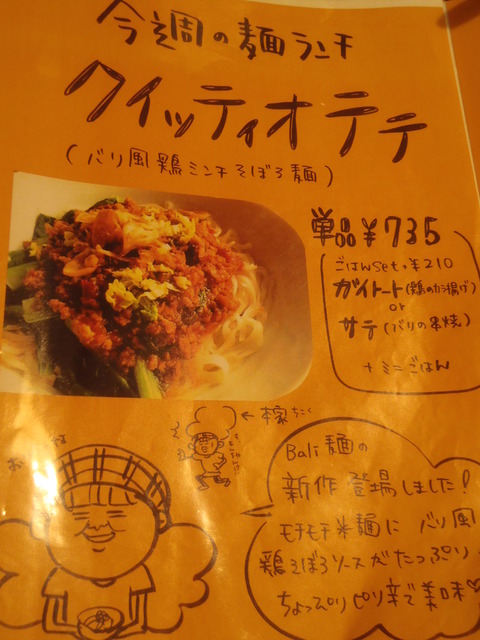 今週の麺ランチ
クイッティオ テテ
(バリ風鶏ミンチそぼろ麺)
単品¥735
ごはんset+¥210
ガイトート(鶏のから揚げ)
or
サテ(バリの串焼)
+ミニごはん
Bali麺の
新作登場しました!
モチモチ米麺に バリ風
鶏そぼろソースがたっぷり
ちょっぴりピリ辛で美味♡